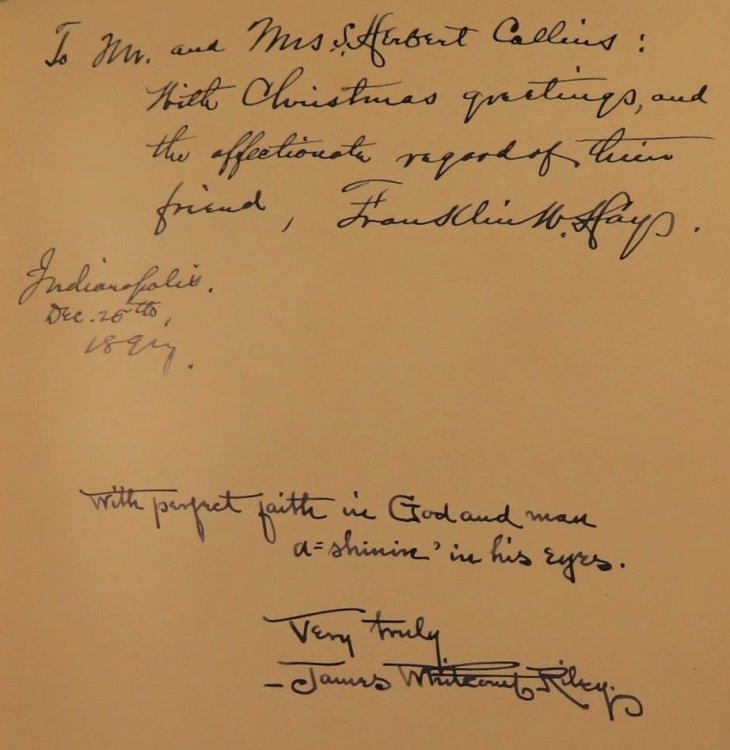 To Mr. and Mrs S. Herbert Collins:
With Christmas greetings, and
the affectionate regard of their
friend, Franklin W. Hays.
Indianapolis.
Dec. 25th,
189
With perfect faith in God and man
a=shinin' in his eyes.
Very truly
-James Whitcomb Riley.